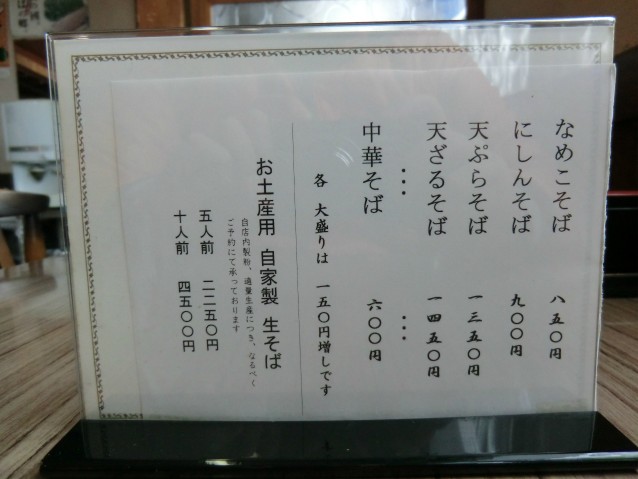 なめこそば 八五〇円
にしんそば 九〇〇円
天ぷらそば 一三五〇円
天ざるそば 一四五〇円
••• •••
中華そば 六〇〇円
各 大盛りは 一五〇円増しです
お土産用 自家製 生そば
自店内製粉、適量生産につき、なるべく
ご予約にて承っております
五人前 二二五〇円
十人前 四五〇〇円